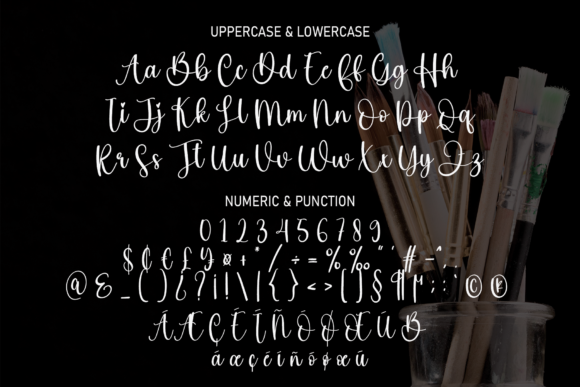 UPPERCASE & LOWERCASE
Aa Bb Cc Dd Ee Ff Gg Hh
Ii Jj Kk Ll Mm Nn Oo Pp Qq
Rr Ss Tt Uu Vv Ww Xx Yy Zz
NUMERIC & PUNCTION
0 1 2 3 4 5 6 7 8 9
$ ¢ € £ ¥ ¤ + * / ÷ = % ‰ " ' # - ^ . ,
@ & _ ( ) ¿ ? ¡ ! \ | { } < > [ ] § ¶ µ ; : © ®
Á Æ Ç É Í Ñ Ó Ø Œ Ú ß
á æ ç é í ñ ó ø œ ú